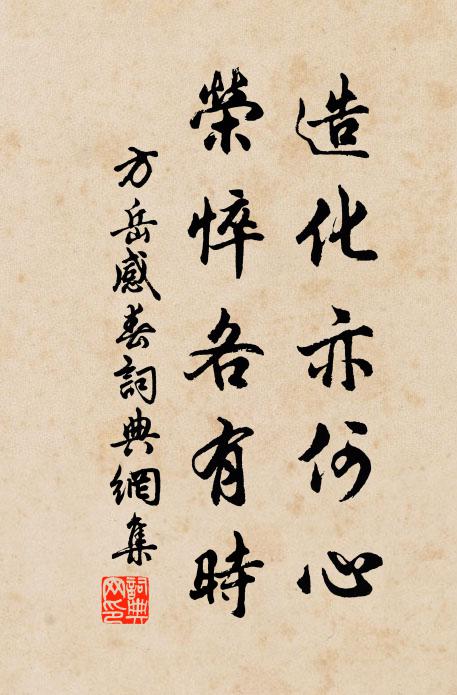 造化亦何心
榮悴各有時
方岳感春詞典網集
詞典網印